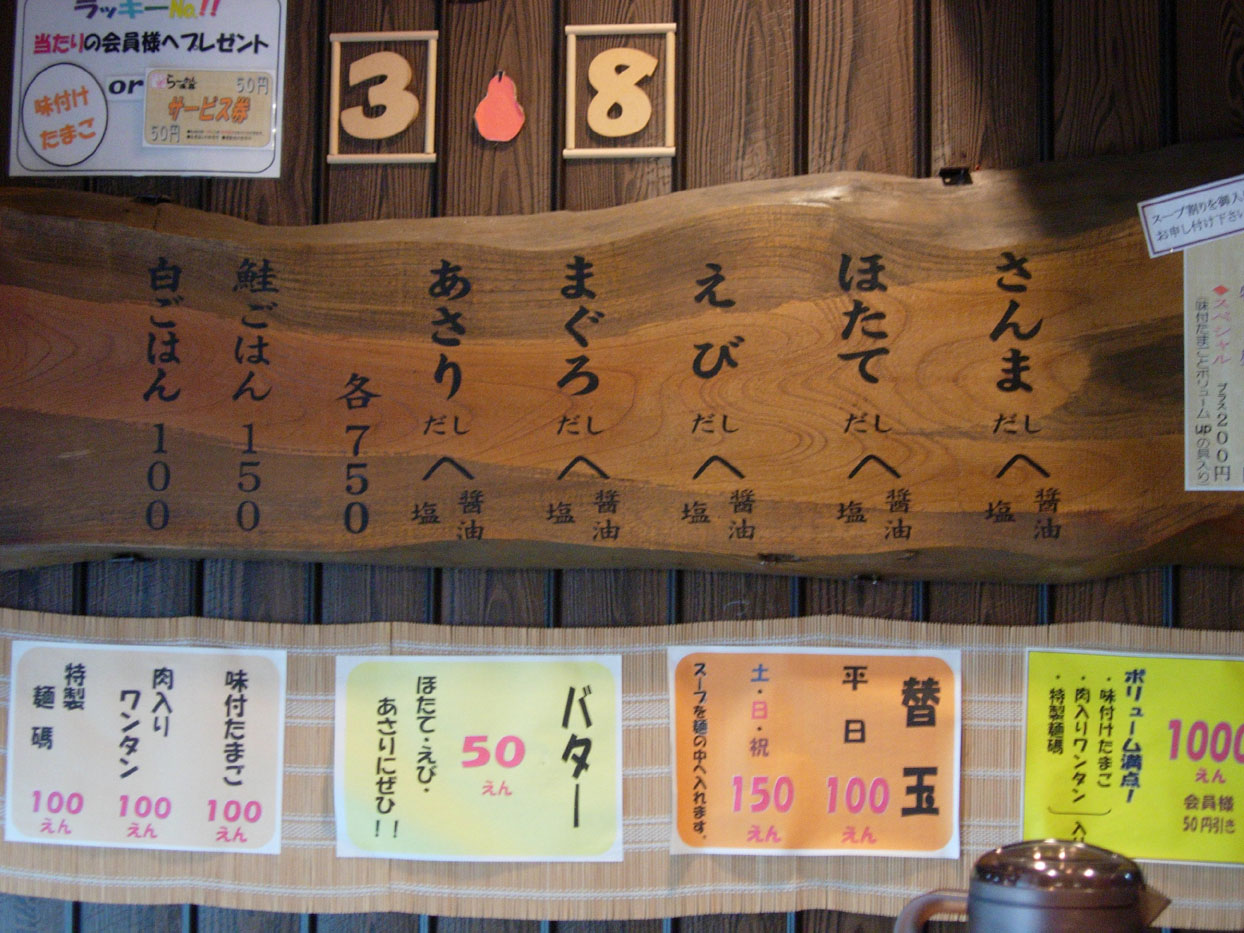 ラッキーNo.!!
当たりの会員様へプレゼント
味付け
たまご
or
らーめん
50円
サービス券
50円
3
8
さんまだしへ醤油 塩
ほたてだしへ醤油 塩
えびだしへ醤油 塩
まぐろだしへ醤油 塩
あさりだしへ醤油 塩
各750
鮭ごはん150
白ごはん100
スープ割りを御入
お申し付け下さい
◆スペシャル プラス200円
味付たまごとボリュームupの具入り
味付たまご 100えん
肉入りワンタン 100えん
特製麺碼 100えん
バター
50えん
ほたて・えび・
あさりにぜひ!!
替玉
平日 100えん
土・日・祝 150えん
スープを麺の中へ入れます。
1000えん
会員様
50円引き
ボリューム満点!
・味付けたまご
・肉入りワンタン
・特製麺碼
入